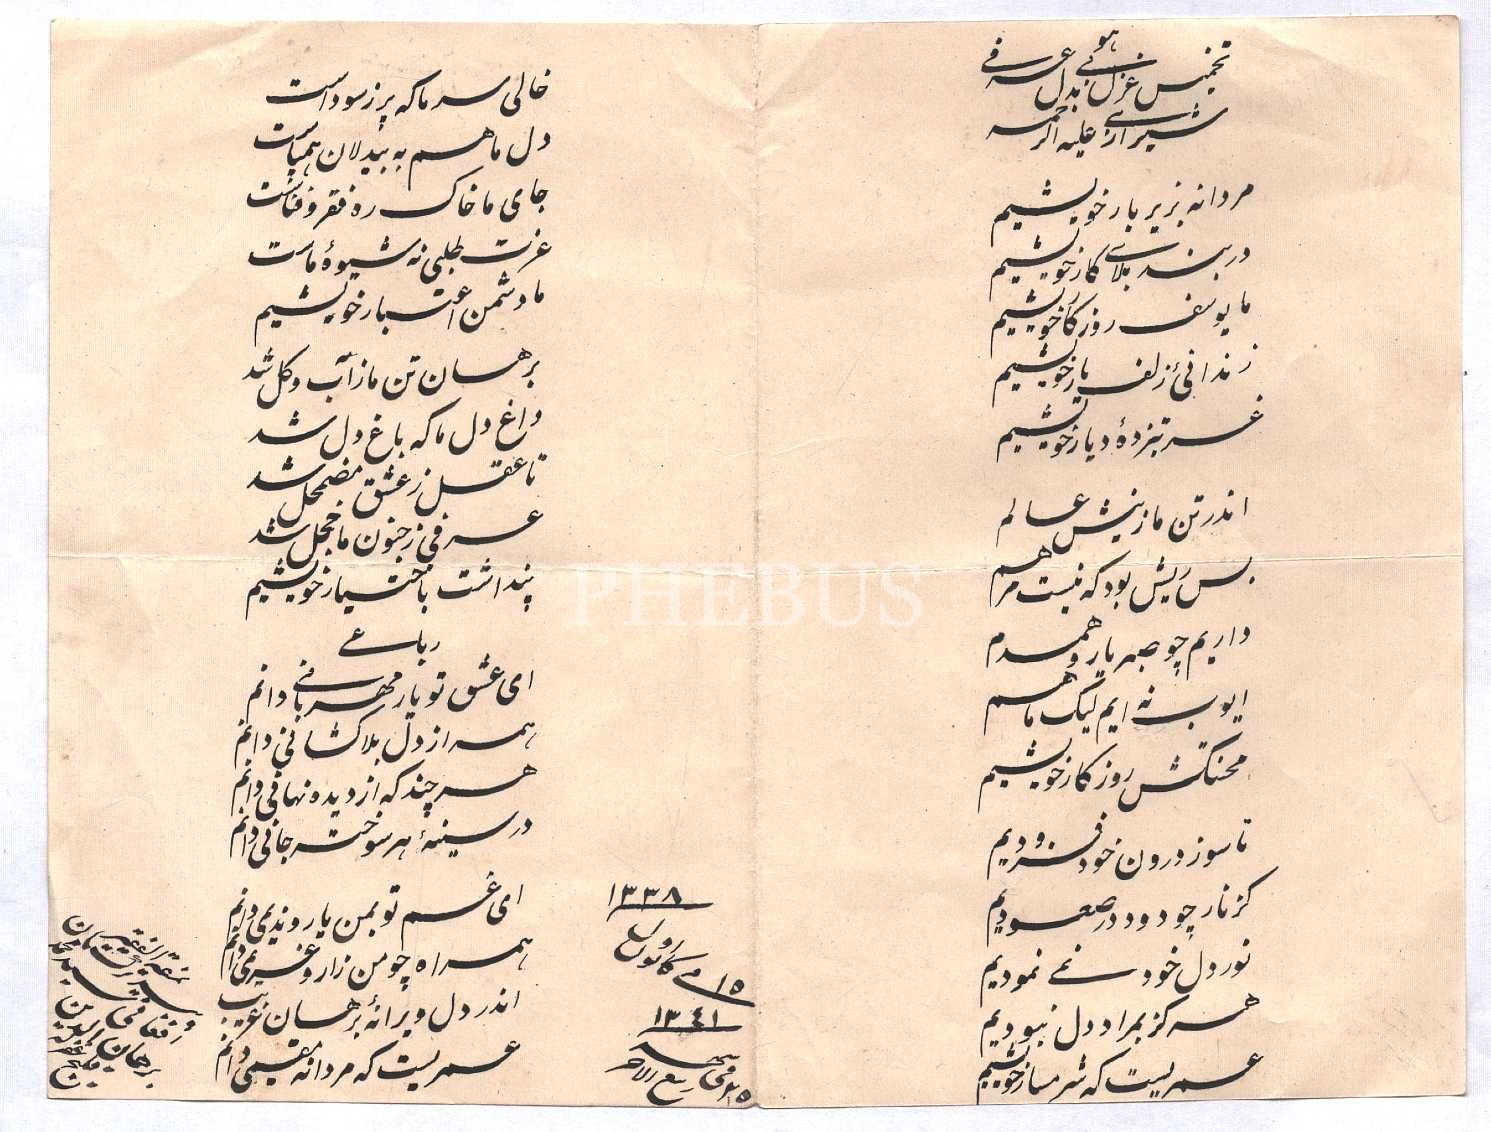 هو
تخمیس غزل بی بدل عرفی
شیرازی علیه الرحمه
مردانه بزیر بار خویشیم
در بند بلای کار خویشیم
ما یوسف روزگار خویشیم
زندانیٔ زلف یار خویشیم
غربتزدهٔ دیار خویشیم
اندر تن ما ز نیش عالم
بس ریش بود که نیست مرهم
داریم چو صبر یار و همدم
ایوب نه ایم لیک ما هم
محنتکش روزگار خویشیم
تا سوز درون خود فزودیم
کز نار چو دود در صعودیم
نور دل خود نمی نمودیم
هرگز بمراد دل نبودیم
عمریست که شرمسار خویشیم
خالی سر ما که پر ز سوداست
دل ما هم به بیدلان همپاست
جای ما خاک ره فقر و فناست
عزت طلبی نه شیوهٔ ماست
ما دشمن اعتبار خویشیم
برهسان تن ما ز آب و گل شد
داغ دل ما که باغ دل شد
تا عقل ز عشق مضمحل شد
عرفی ز جنون ما خجل شد
پنداشت باختیار خویشیم
رباعی
ای عشق تو یار مهربانی دانم
همراز دل بلاکشانی دانم
هر چند که از دیده نهانی دانم
در سینهٔ هر سوخته جانی دانم
ای غم تو بمن یار و ندیمی دانم
همراه چو من زار و غریمی دانم
اندر دل ویرانهٔ برهان غریب
عمریست که مردانه مقیمی دانم
١٣٣٨
١٥ م کانون اول
١٣٤١
٢٥ فی ربیع الآخر
نمقه الفقیر
سید
برهان الدین
بلخی